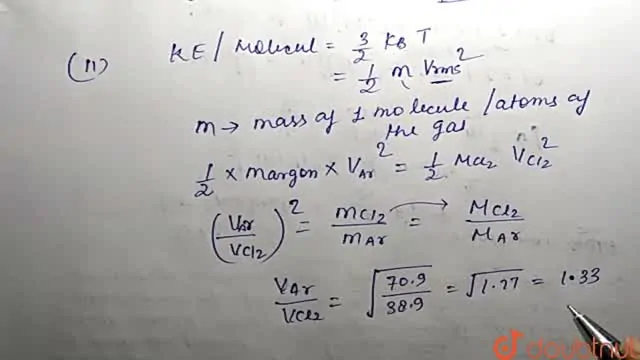 (11) KE / molecul = 3/2 KB T
= 1/2 m Vrms²
m → mass of 1 molecule / atoms of
the gas
1/2 × margon × VAr² = 1/2 MCl2 VCl2²
(VAr/VCl2)² = mCl2/mAr = MCl2/MAr
VAr/VCl2 = √70.9/38.9 = √1.77 = 1.33
doubtnut